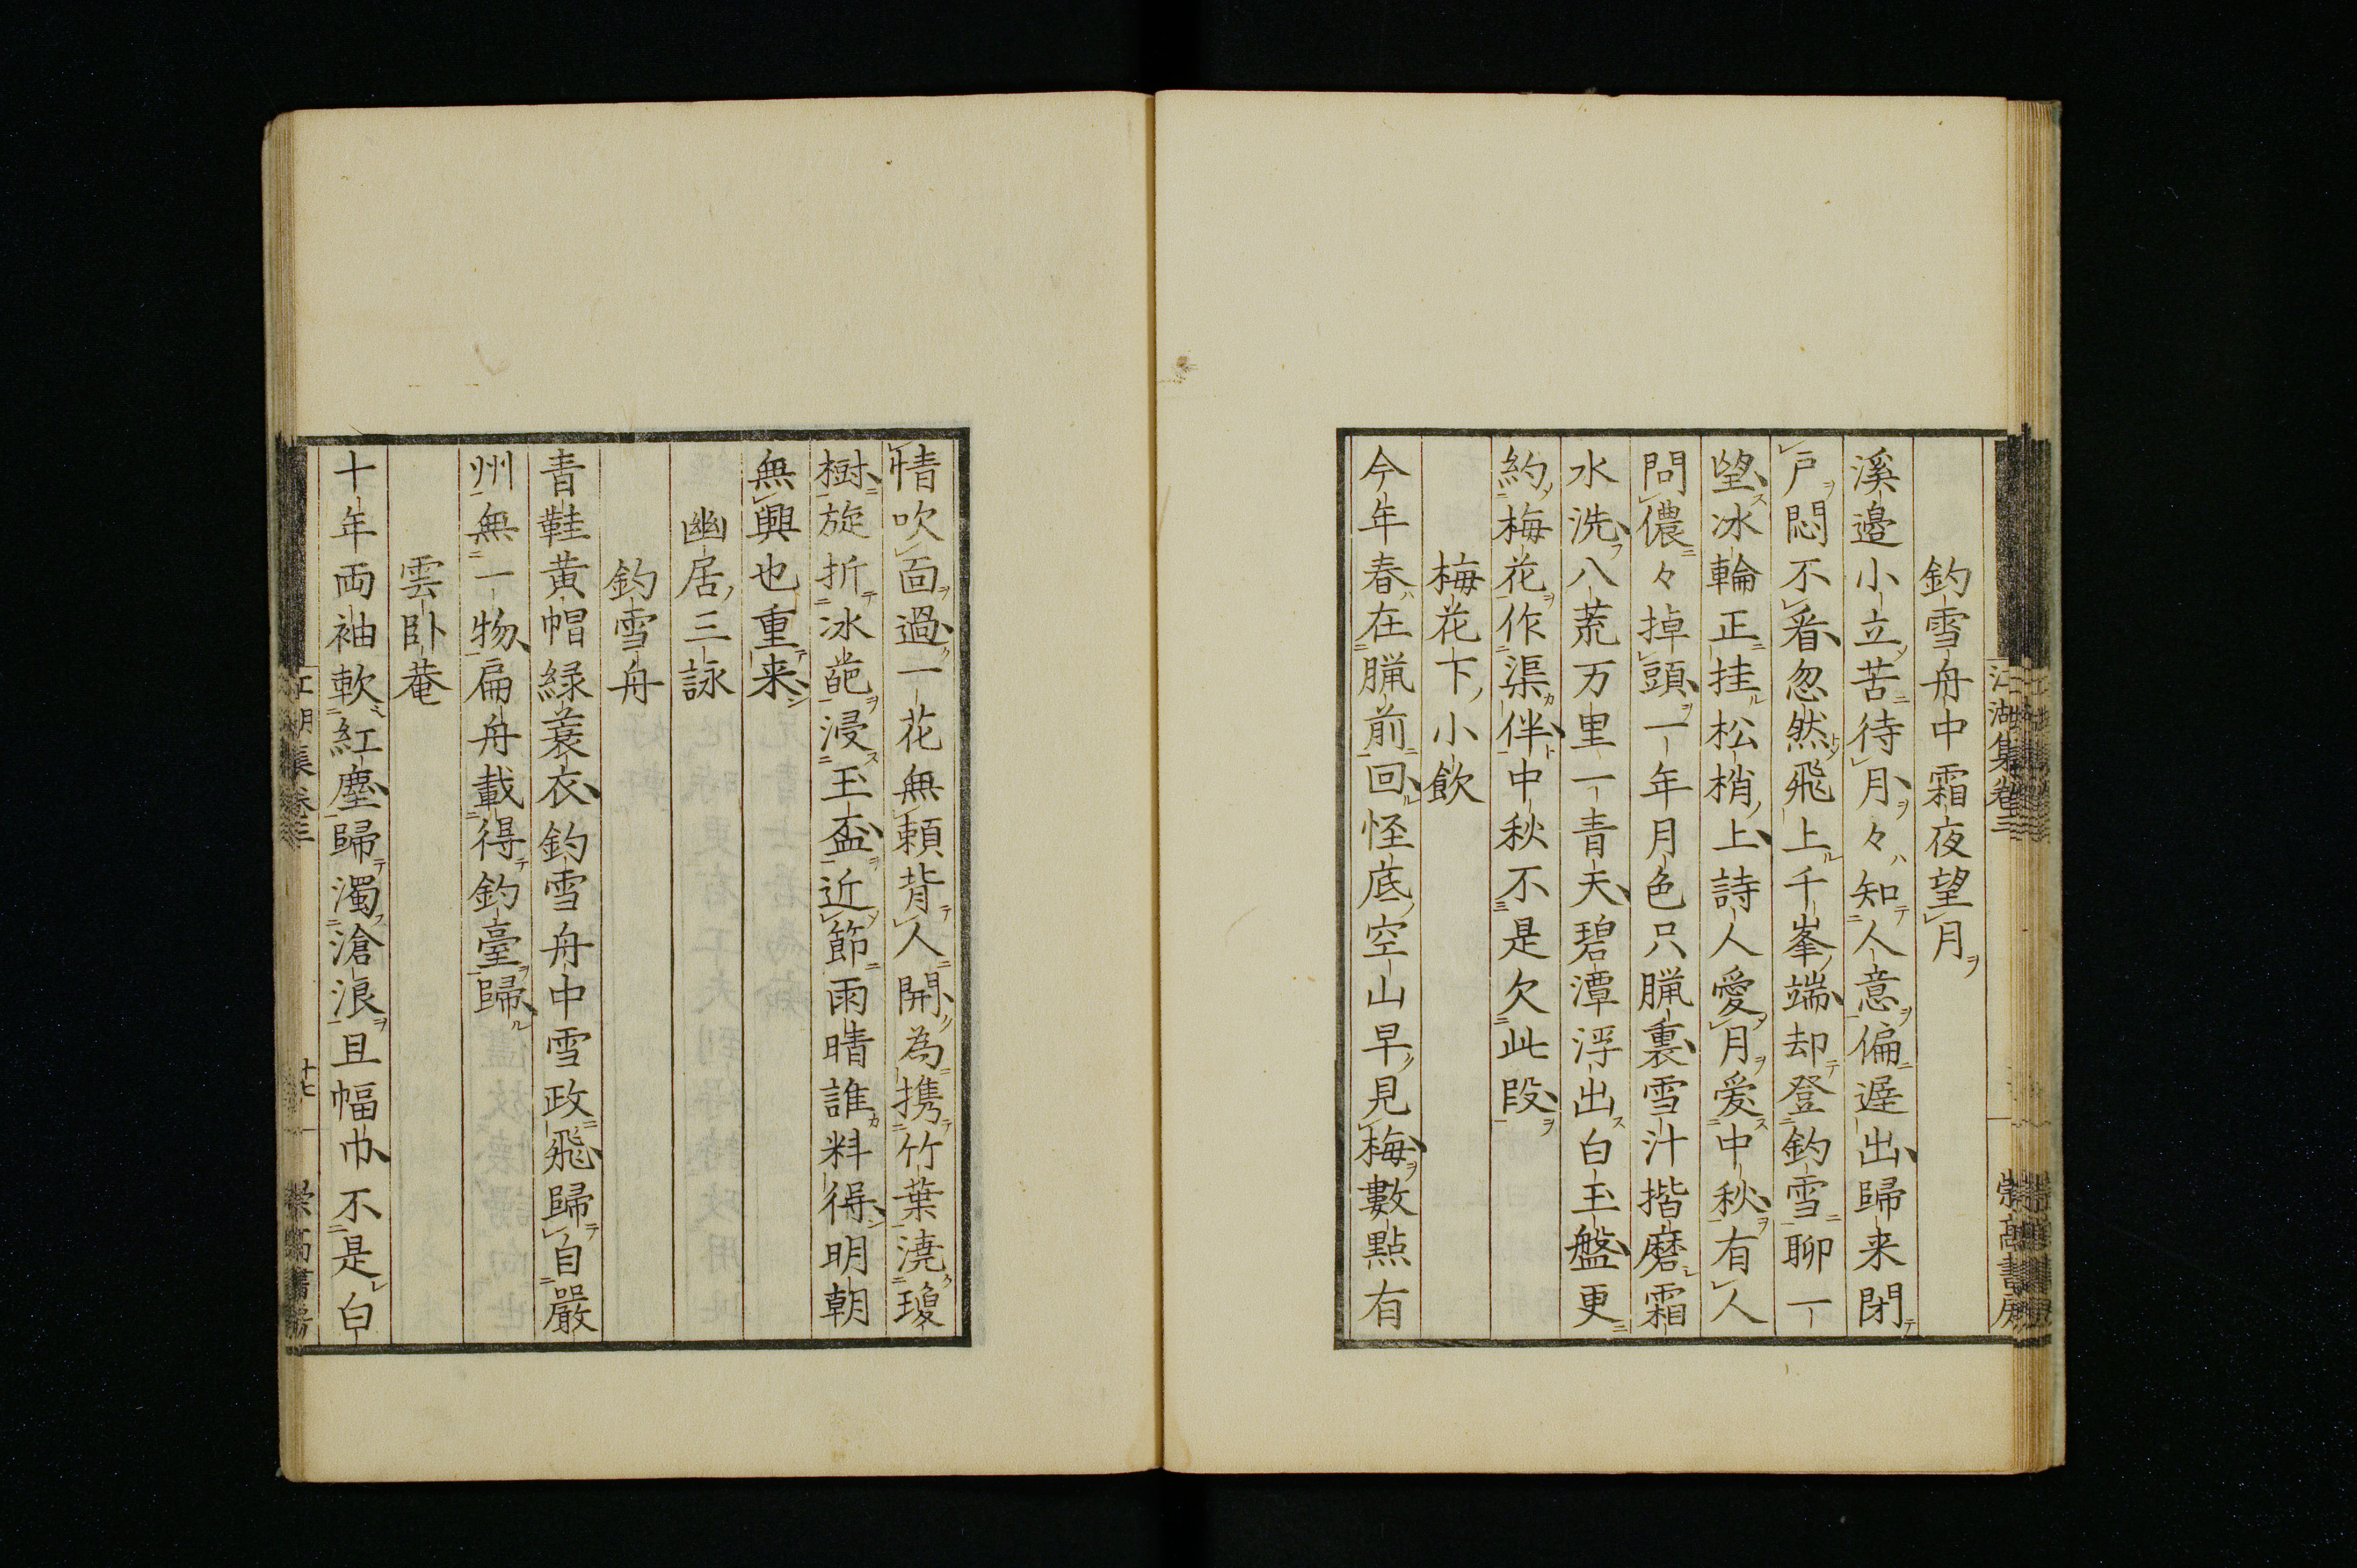 江湖集卷三
崇高書房
釣雪舟中霜夜望月
溪邉小立苦待月々知人意偏遅出歸来閉
戸悶不看忽然飛上千峯端却登釣雪聊一
望冰輪正挂松梢上詩人愛月爱中秋有人
問儂々掉頭一年月色只臘裏雪汁揩磨霜
水洗八荒万里一青天碧潭浮出白玉盤更
約梅花作渠伴中秋不是欠此段
梅花下小飲
今年春在臘前回怪底空山早見梅數點有
情吹面過一花無頼背人開為携竹葉澆瓊
樹旋折冰葩浸玉盃近節雨晴誰料得明朝
無興也重来
幽居三詠
釣雪舟
青鞋黄帽緑蓑衣釣雪舟中雪政飛歸自嚴
州無一物扁舟載得釣臺歸
雲卧菴
十年両袖軟紅塵歸濯滄浪且幅巾不是白
江湖集卷三
十七
崇高書房